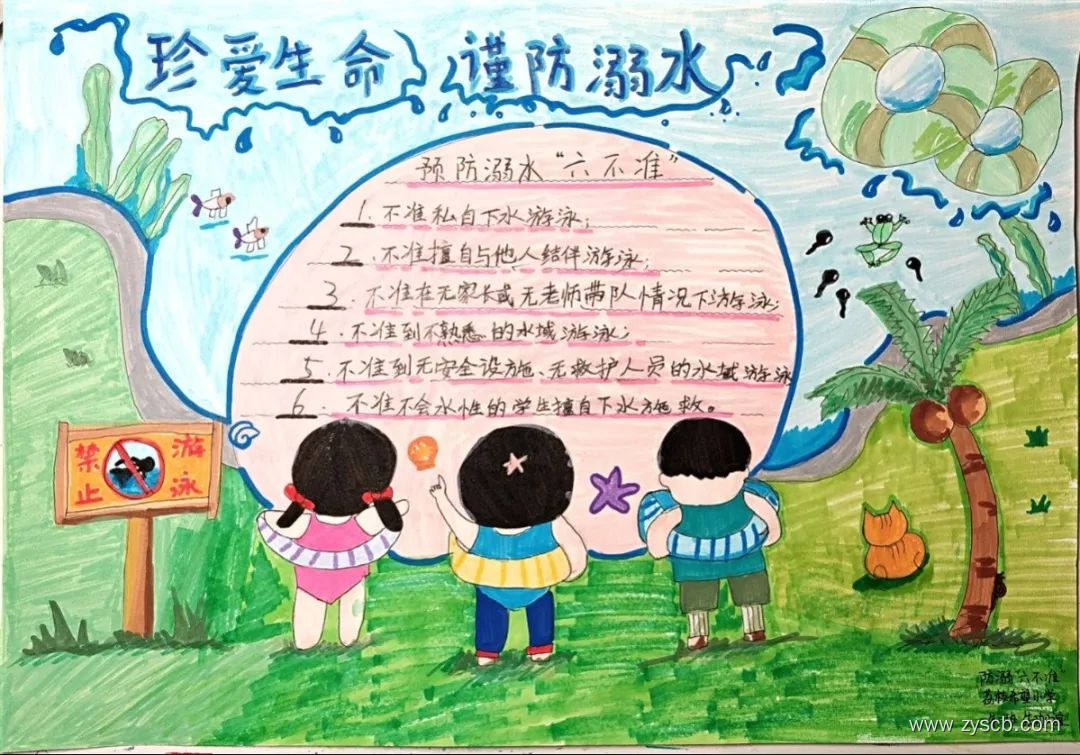 珍爱生命 谨防溺水
预防溺水“六不准”
1.不准私自下水游泳;
2.不准擅自与他人结伴游泳;
3.不准在无家长或无老师带队情况下游泳;
4.不准到不熟悉的水域游泳;
5.不准到无安全设施、无救护人员的水域游泳
6.不准不会水性的学生擅自下水施救。
禁止
游泳
防溺“六不准”
www.zyscb.com